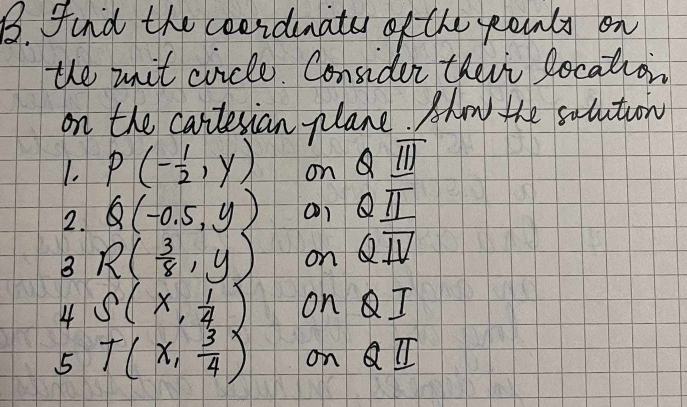 B. Find the coordinates of the points on
the unit circle. Consider their location
on the cartesian plane. Show the solution
1. P(-1/2, y) on Q III
2. Q(-0.5, y) on Q II
3 R(3/8, y) on Q IV
4 S(x, 1/4) on Q I
5 T(x, 3/4) on Q II